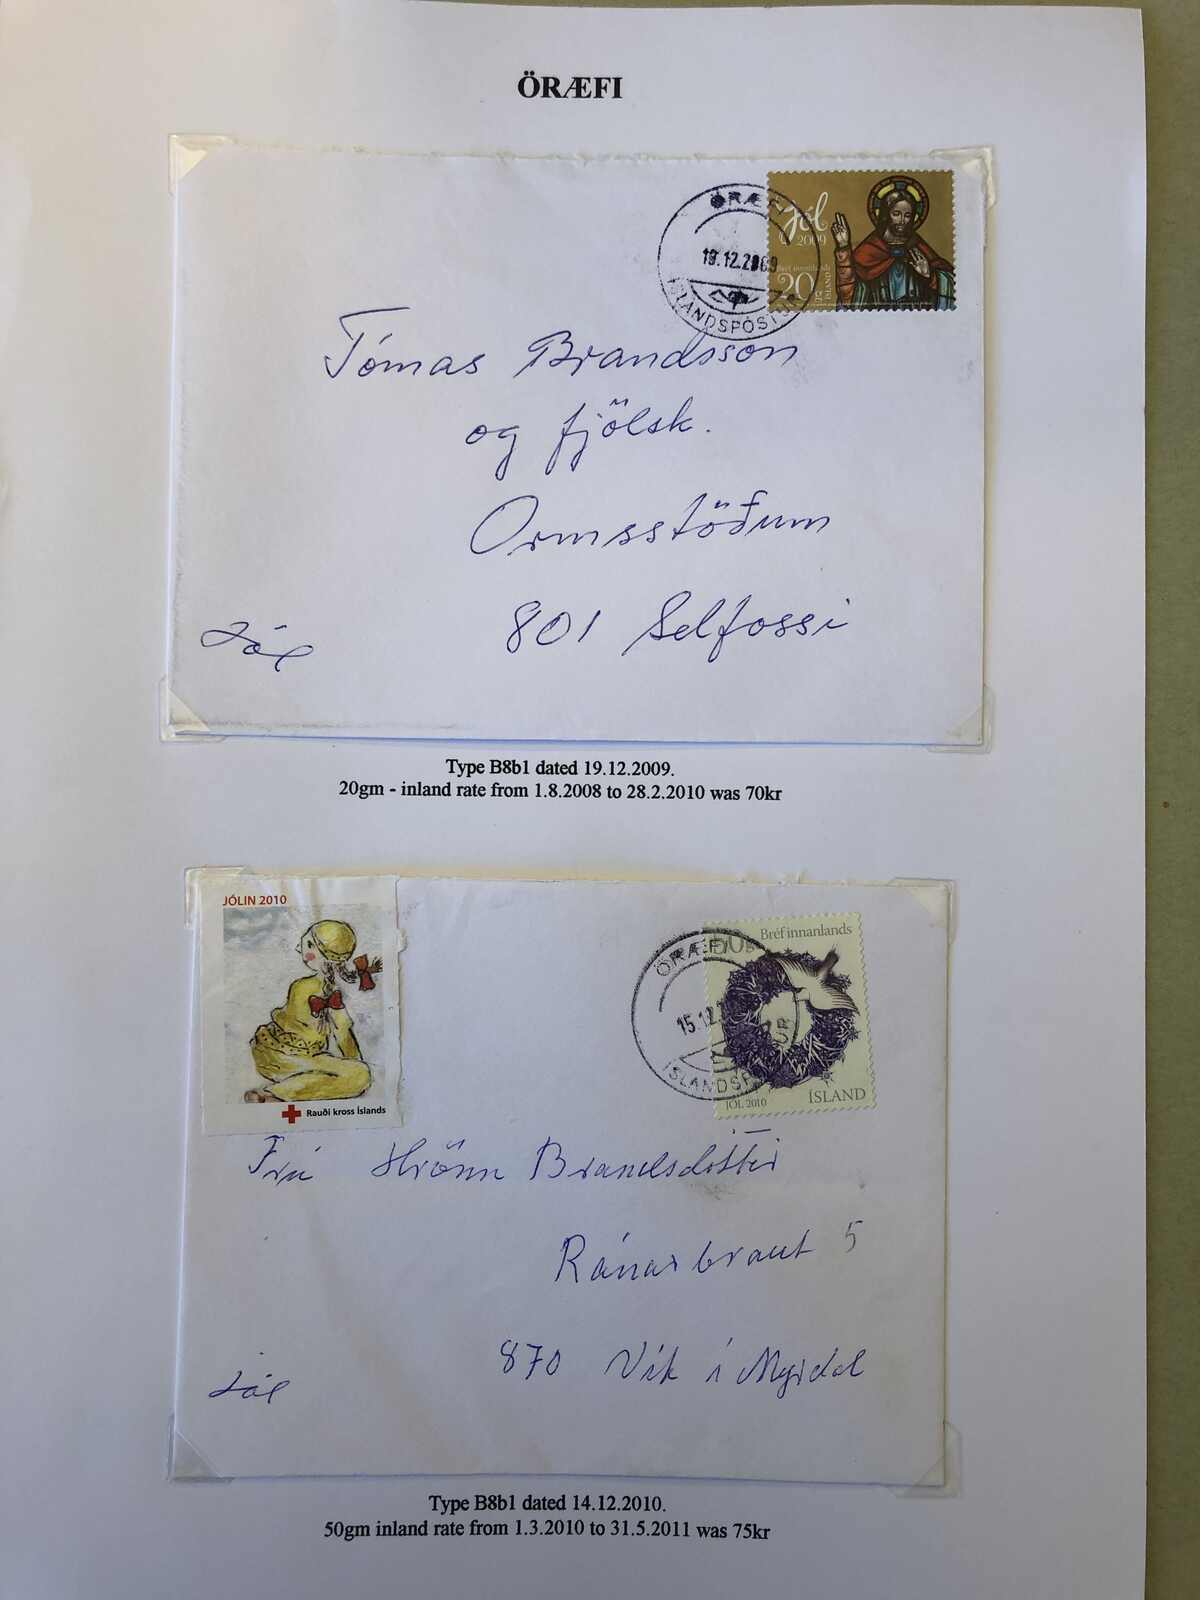 ÖRÆFI
ÖRÆFI
19.12.2009
ÍSLANDSPÓSTUR
Jól
2009
Bréf innanlands
20g
ÍSLAND
Tómas Brandsson
og fjölsk.
Ormsstöðum
801 Selfossi
Jól
Type B8b1 dated 19.12.2009.
20gm - inland rate from 1.8.2008 to 28.2.2010 was 70kr
JÓLIN 2010
Rauði kross Íslands
ÖRÆFI
15.12.
ÍSLANDSPÓSTUR
50g Bréf innanlands
JÓL 2010 ÍSLAND
Frú Hrönn Brandsdóttir
Ránarbraut 5
870 Vík í Mýrdal
Jól
Type B8b1 dated 14.12.2010.
50gm inland rate from 1.3.2010 to 31.5.2011 was 75kr